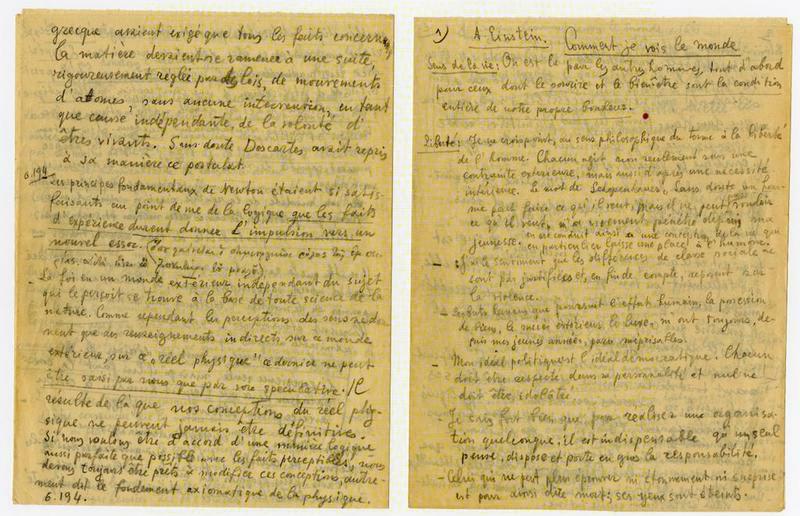 grecque avaient exigé que tous les faits concernant
la matière devaient se ramener à une suite,
rigoureusement réglée par des lois, de mouvements
d'atomes, sans aucune intervention, en tant
que cause indépendante, de la volonté d'
êtres vivants. Sans doute Descartes avait repris
à sa manière ce postulat.
6.194 Les principes fondamentaux de Newton étaient si satis-
faisants au point de vue de la logique que les faits
d'expérience durent donner l'impulsion vers un
nouvel essor.
- La foi en un monde extérieur indépendant du sujet
qui le perçoit se trouve à la base de toute science de la
nature. Comme cependant les perceptions des sens ne don-
nent que des renseignements indirects sur ce monde
extérieur, sur ce "réel physique" ce dernier ne peut
être saisi par nous que par voie spéculative. Il
résulte de là que nos conceptions du réel phy-
sique ne peuvent jamais être définitives.
Si nous voulons être d'accord d'une manière logique
aussi parfaite que possible avec les faits perceptibles, nous
devons toujours être prêts à modifier ces conceptions, autre-
ment dit le fondement axiomatique de la physique.
6.194.
1) A. Einstein. Comment je vois le monde
Sens de la vie: On est là pour les autres hommes, tout d'abord
pour ceux dont le sourire et le bienêtre sont la condition
entière de notre propre bonheur.
Liberté: Je ne crois point, au sens philosophique du terme à la liberté
de l'homme. Chacun agit non seulement sous une
contrainte extérieure, mais aussi d'après une nécessité
intérieure. Le mot de Schopenhauer, sans doute un hom-
me peut faire ce qu'il veut, mais il ne peut vouloir
ce qu'il veut, m'a vivement pénétré depuis ma
jeunesse. on est conduit ainsi à une conception de la vie qui
en particulier laisse une place à l'humour.
- J'ai le sentiment que les différences de classe sociale ne
sont pas justifiées et, en fin de compte, reposent sur
la violence.
- Les buts banaux que poursuit l'effort humain, la possession
de biens, le succès extérieur, le luxe, m'ont toujours, de-
puis mes jeunes années, paru méprisables.
- Mon idéal politique est l'idéal démocratique. Chacun
doit être respecté dans sa personnalité et nul ne
doit être idolâtré.
- Je sais fort bien que pour réaliser une organisa-
tion quelconque, il est indispensable qu'un seul
pense, dispose et porte en gros la responsabilité.
- Celui qui ne peut plus éprouver ni étonnement ni surprise
est pour ainsi dire mort, ses yeux sont éteints.